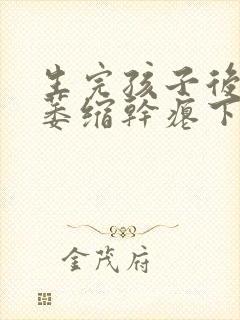 生完孩子後
萎缩幹瘪下
金茂府